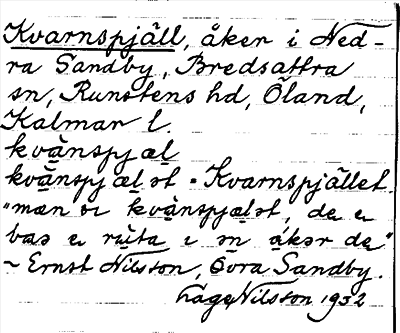 Kvarnspjäll, åker i Ned-
ra Sandby, Bredsättra
sn, Runstens hd, Öland,
Kalmar l.
kvànspjæl
kvànspjælət = Kvarnspjället.
"mæn ɷ kvànspjælət, de e
bas e rùta i ən ákər de"
~ Ernst Nilsson, Övra Sandby.
Tage Nilsson 1932